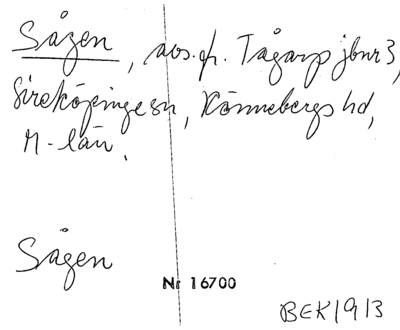 Sågen, avs. fr. Tågarp jbnr 3,
Sireköpinge sn, Rönnebergs hd,
M-län.
Sågen
Nr 16700
BEK1913